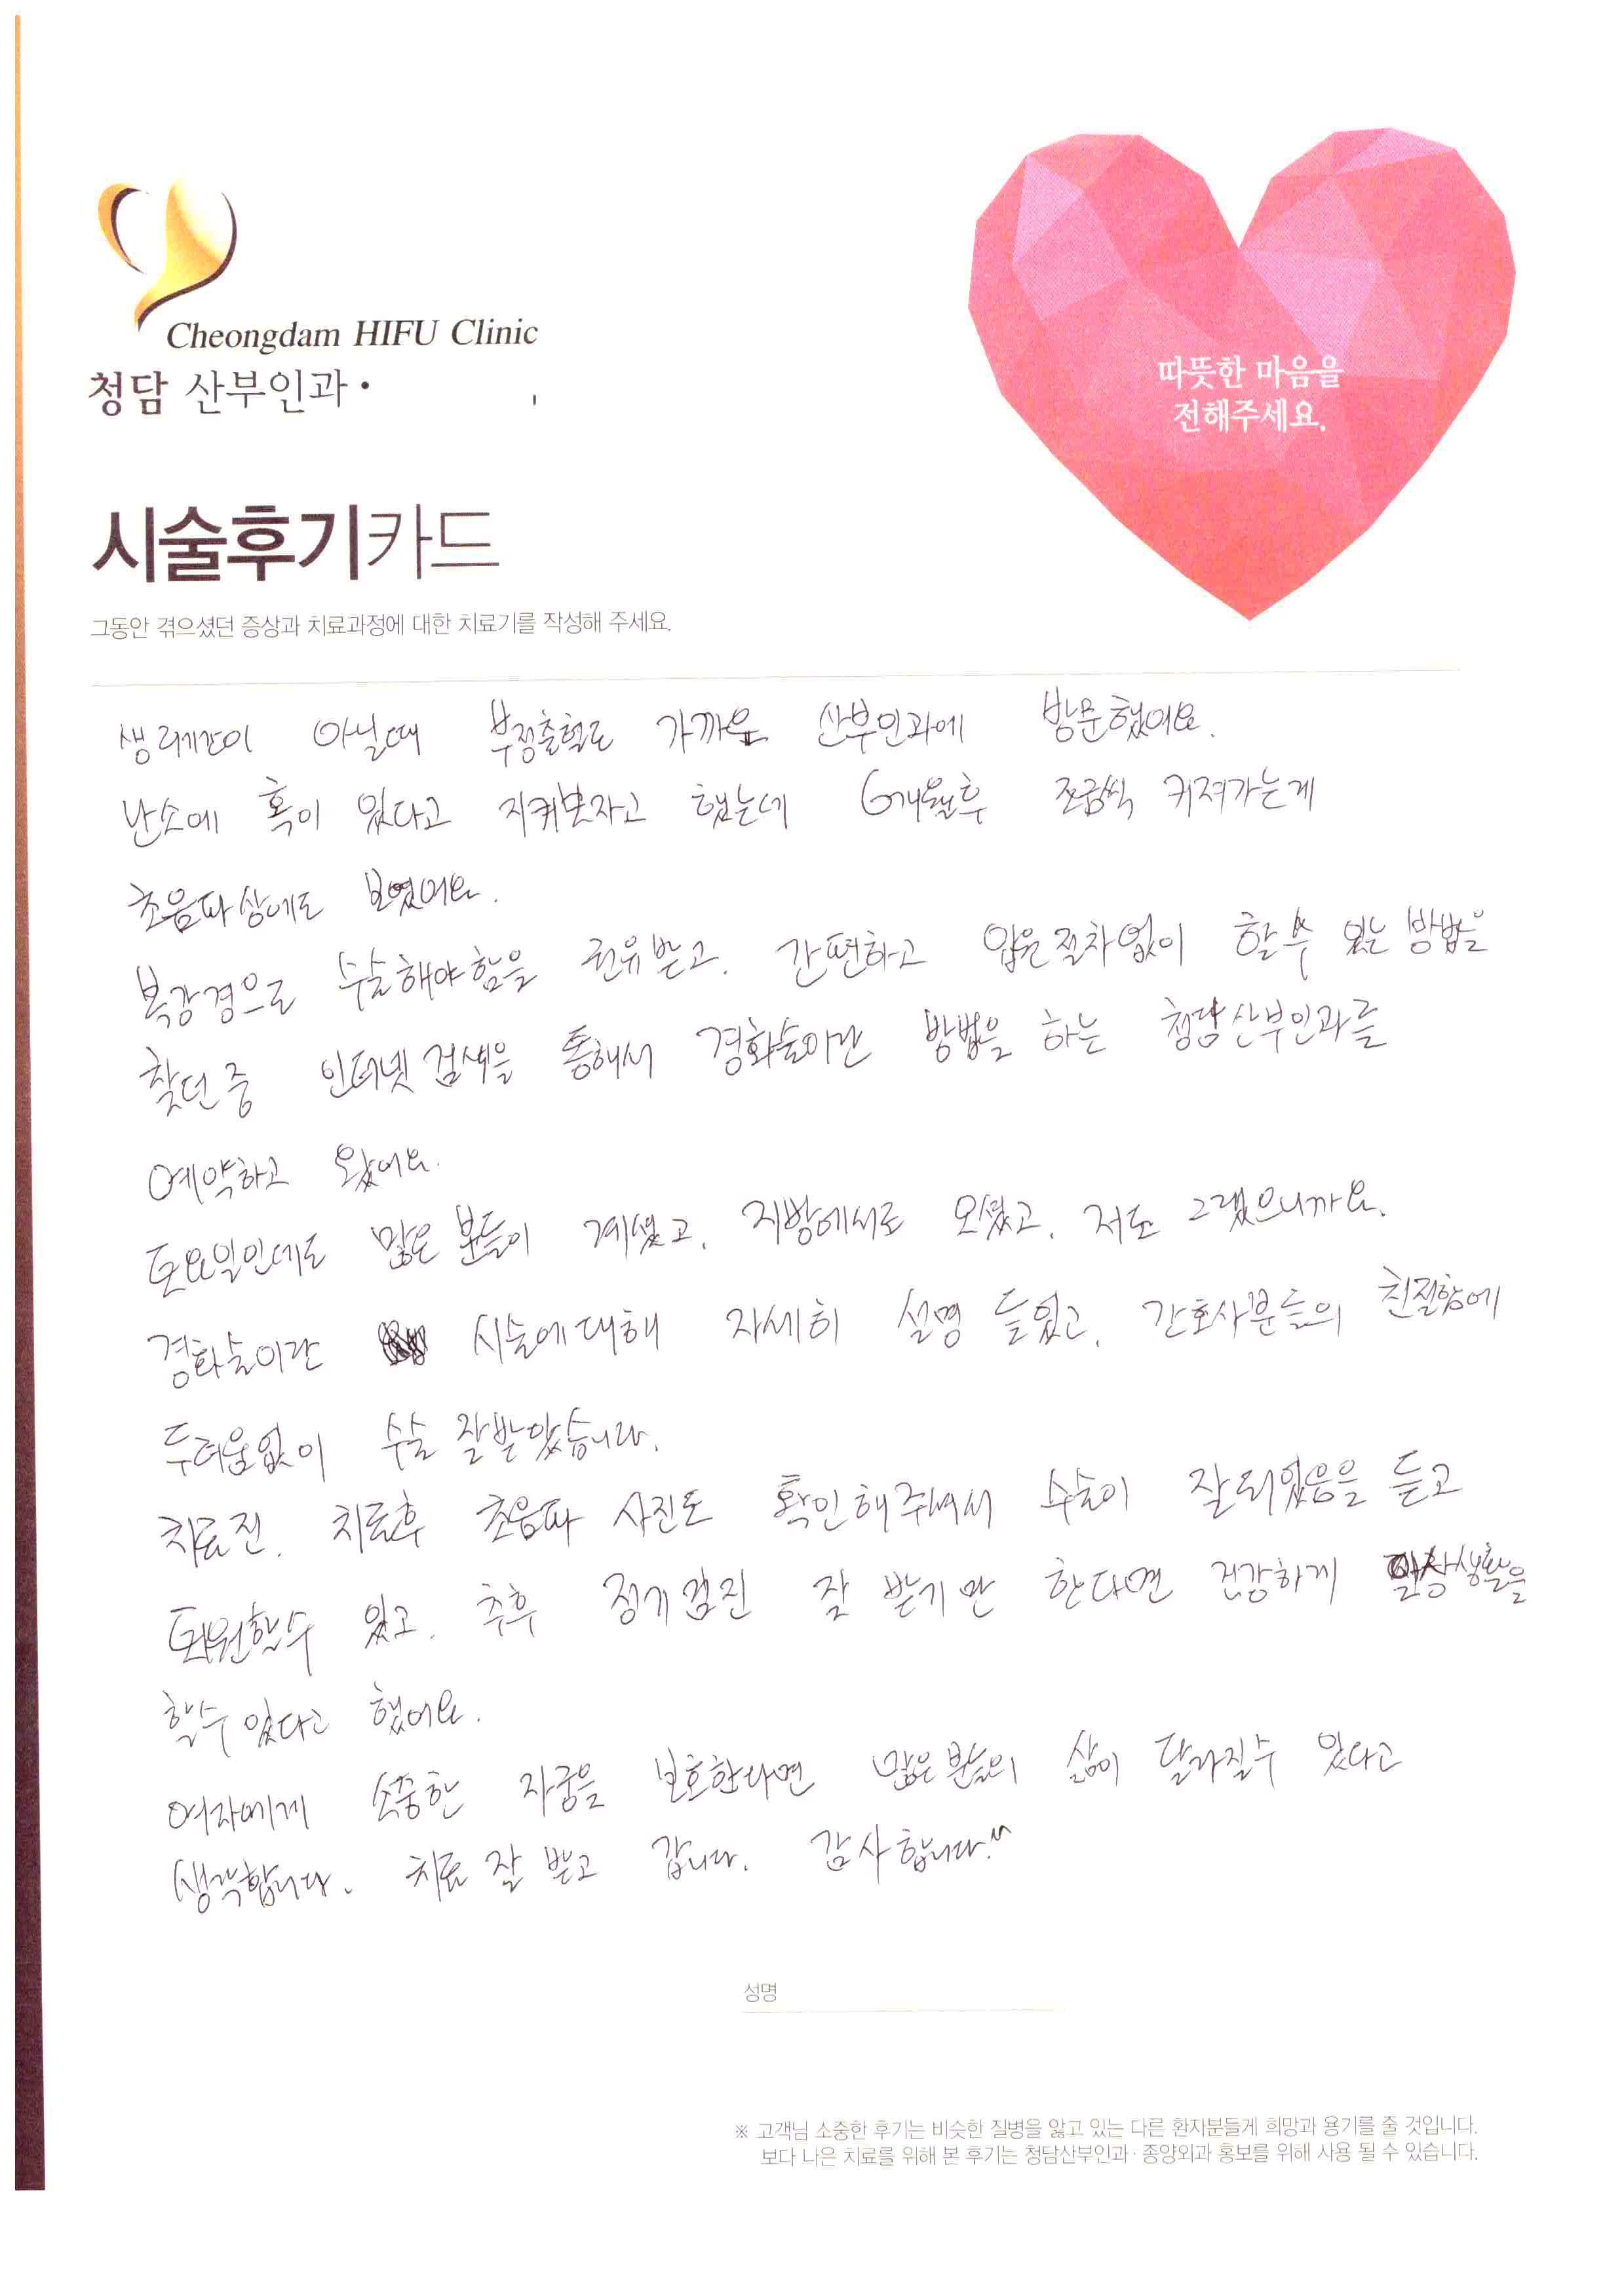 Cheongdam HIFU Clinic
청담 산부인과·
따뜻한 마음을
전해주세요.
시술후기카드
그동안 겪으셨던 증상과 치료과정에 대한 치료기를 작성해 주세요.
생리기간이 아닐때 부정출혈로 가까운 산부인과에 방문했어요.
난소에 혹이 있다고 지켜보자고 했는데 6개월후 조금씩 커져가는게
초음파상에도 보였어요.
복강경으로 수술해야함을 권유받고, 간편하고 많은절차없이 할수 있는 방법을
찾던중 인터넷 검색을 통해서 경화술이란 방법을 하는 청담산부인과를
예약하고 왔어요.
토요일인데도 많은 분들이 계셨고, 지방에서도 오셨고, 저도 그랬으니까요.
경화술이란 시술에대해 자세히 설명 들었고, 간호사분들의 친절함에
두려움없이 수술 잘받았습니다.
치료전, 치료후 초음파 사진도 확인해주셔서 수술이 잘되었음을 듣고
퇴원할수 있고, 추후 정기검진 잘 받기만 한다면 건강하게 일상생활을
할수있다고 했어요.
여자에게 소중한 자궁을 보호한다면 많은분들의 삶이 달라질수 있다고
생각합니다. 치료 잘 받고 갑니다. 감사합니다.^^
성명
※ 고객님 소중한 후기는 비슷한 질병을 앓고 있는 다른 환자분들게 희망과 용기를 줄 것입니다.
보다 나은 치료를 위해 본 후기는 청담산부인과·종양외과 홍보를 위해 사용 될 수 있습니다.